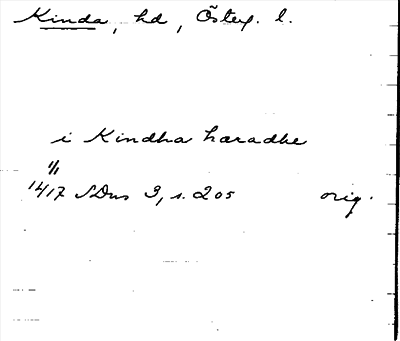 Kinda, hd, Österg. l.
i Kindha haradhe
1/1
1417 SDns 3, s. 205 orig.